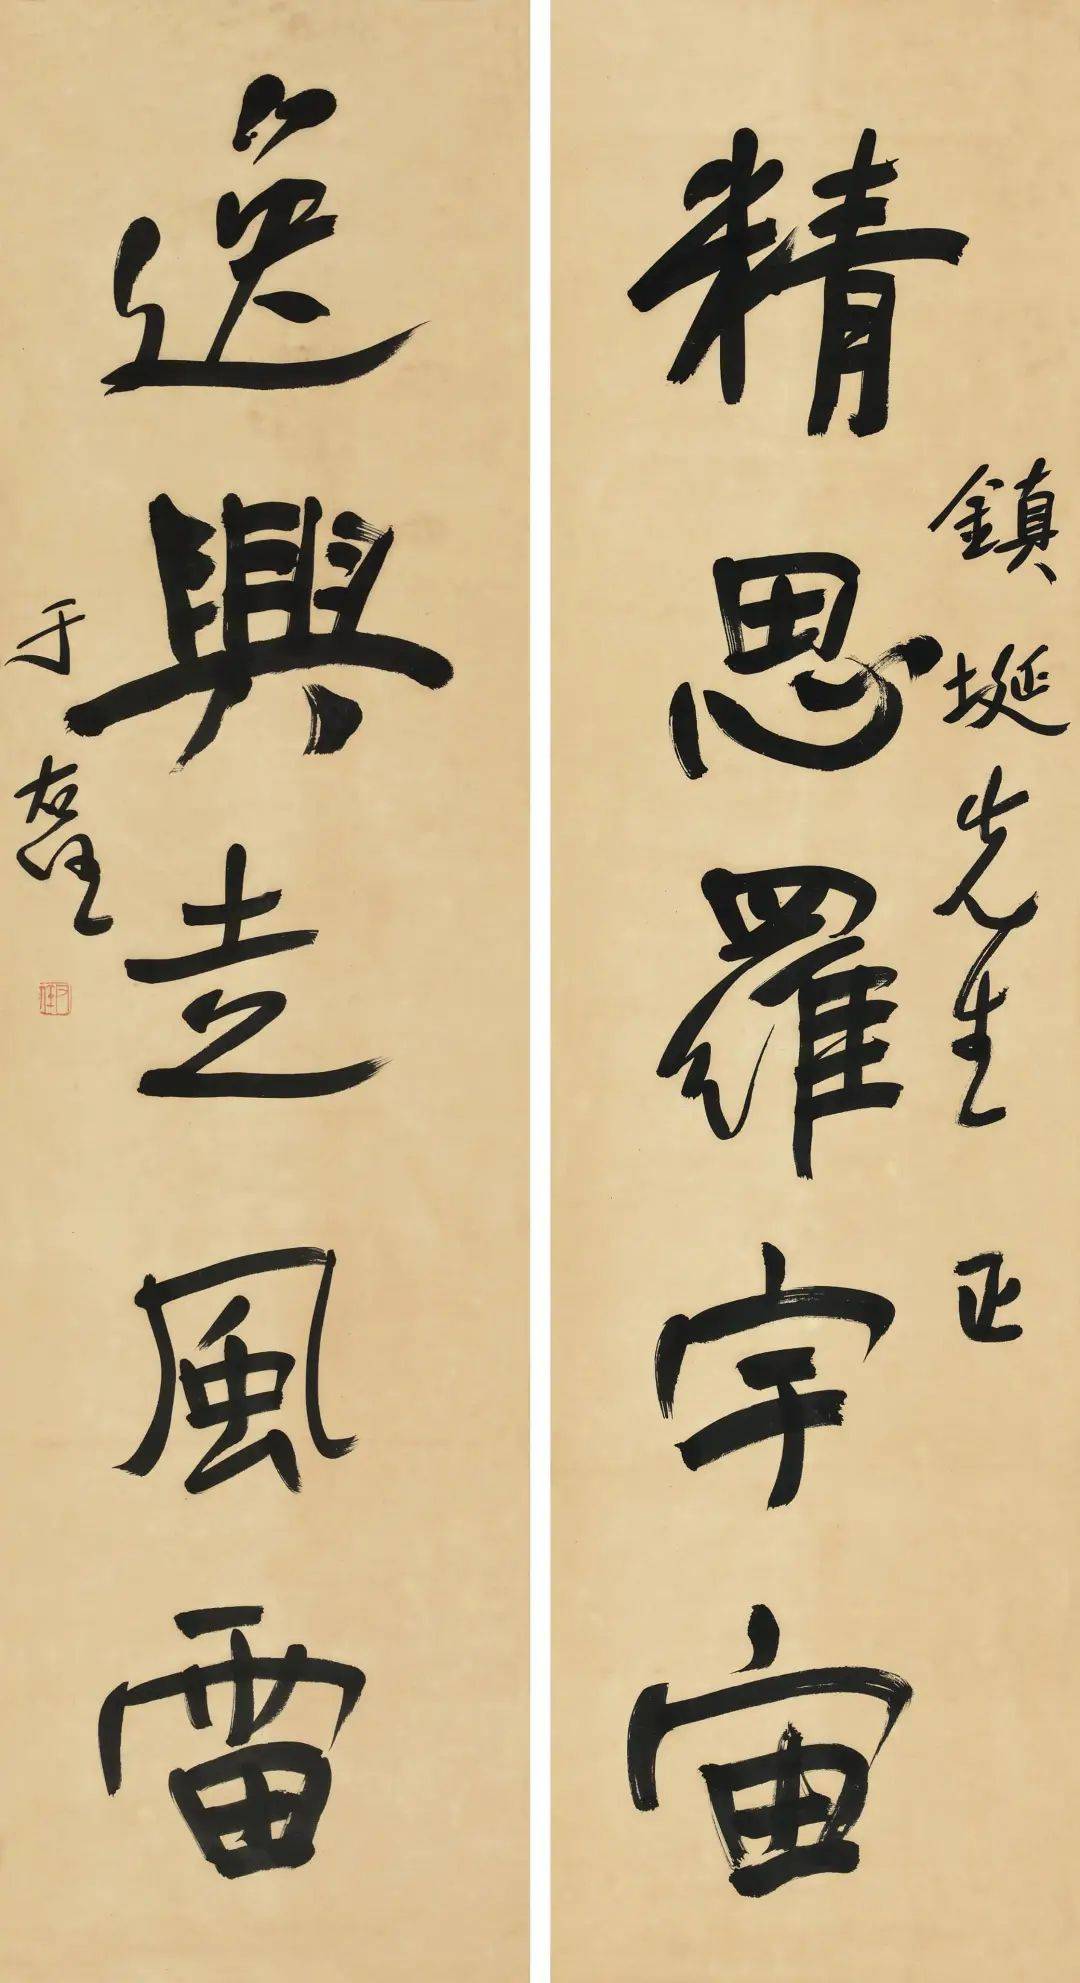 鎮埏先生正
精思羅宇宙
逸興走風雷
于右任